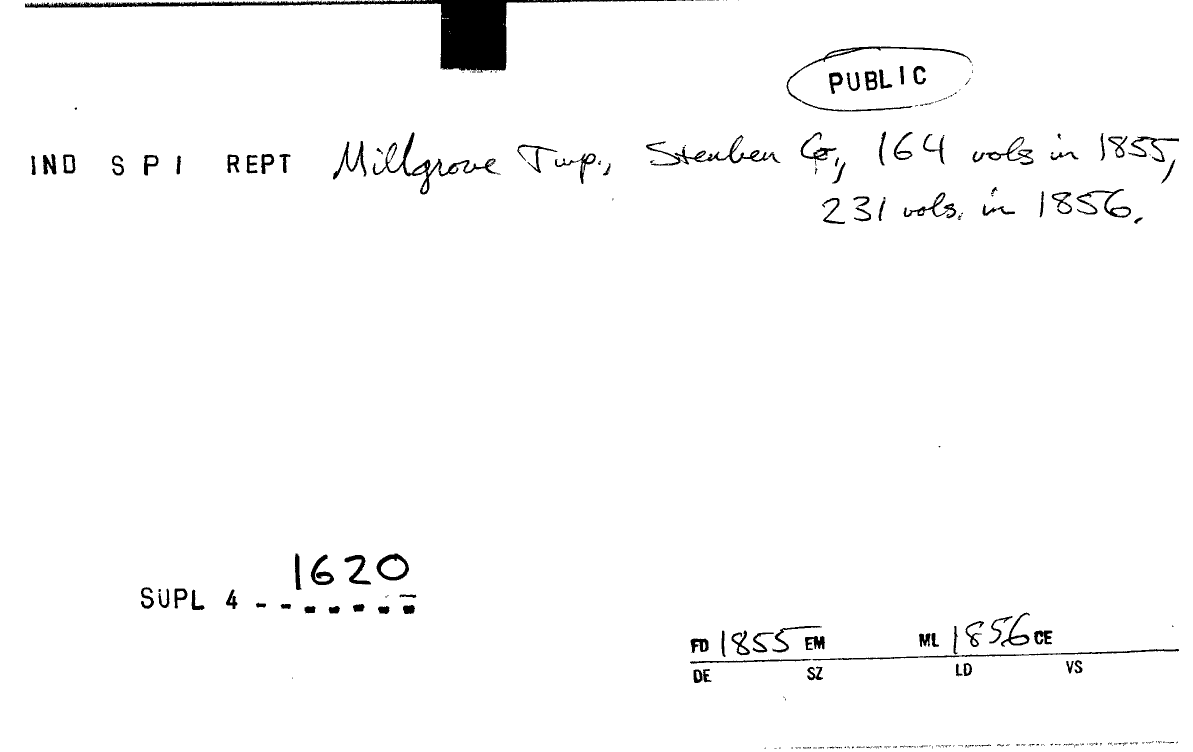 PUBLIC
IND S P I REPT Millgrove Twp., Steuben Co., 164 vols in 1855,
231 vols. in 1856.
1620
SUPL 4 - - - - - - -
FD 1855 EM ML 1856 CE
DE SZ LD VS